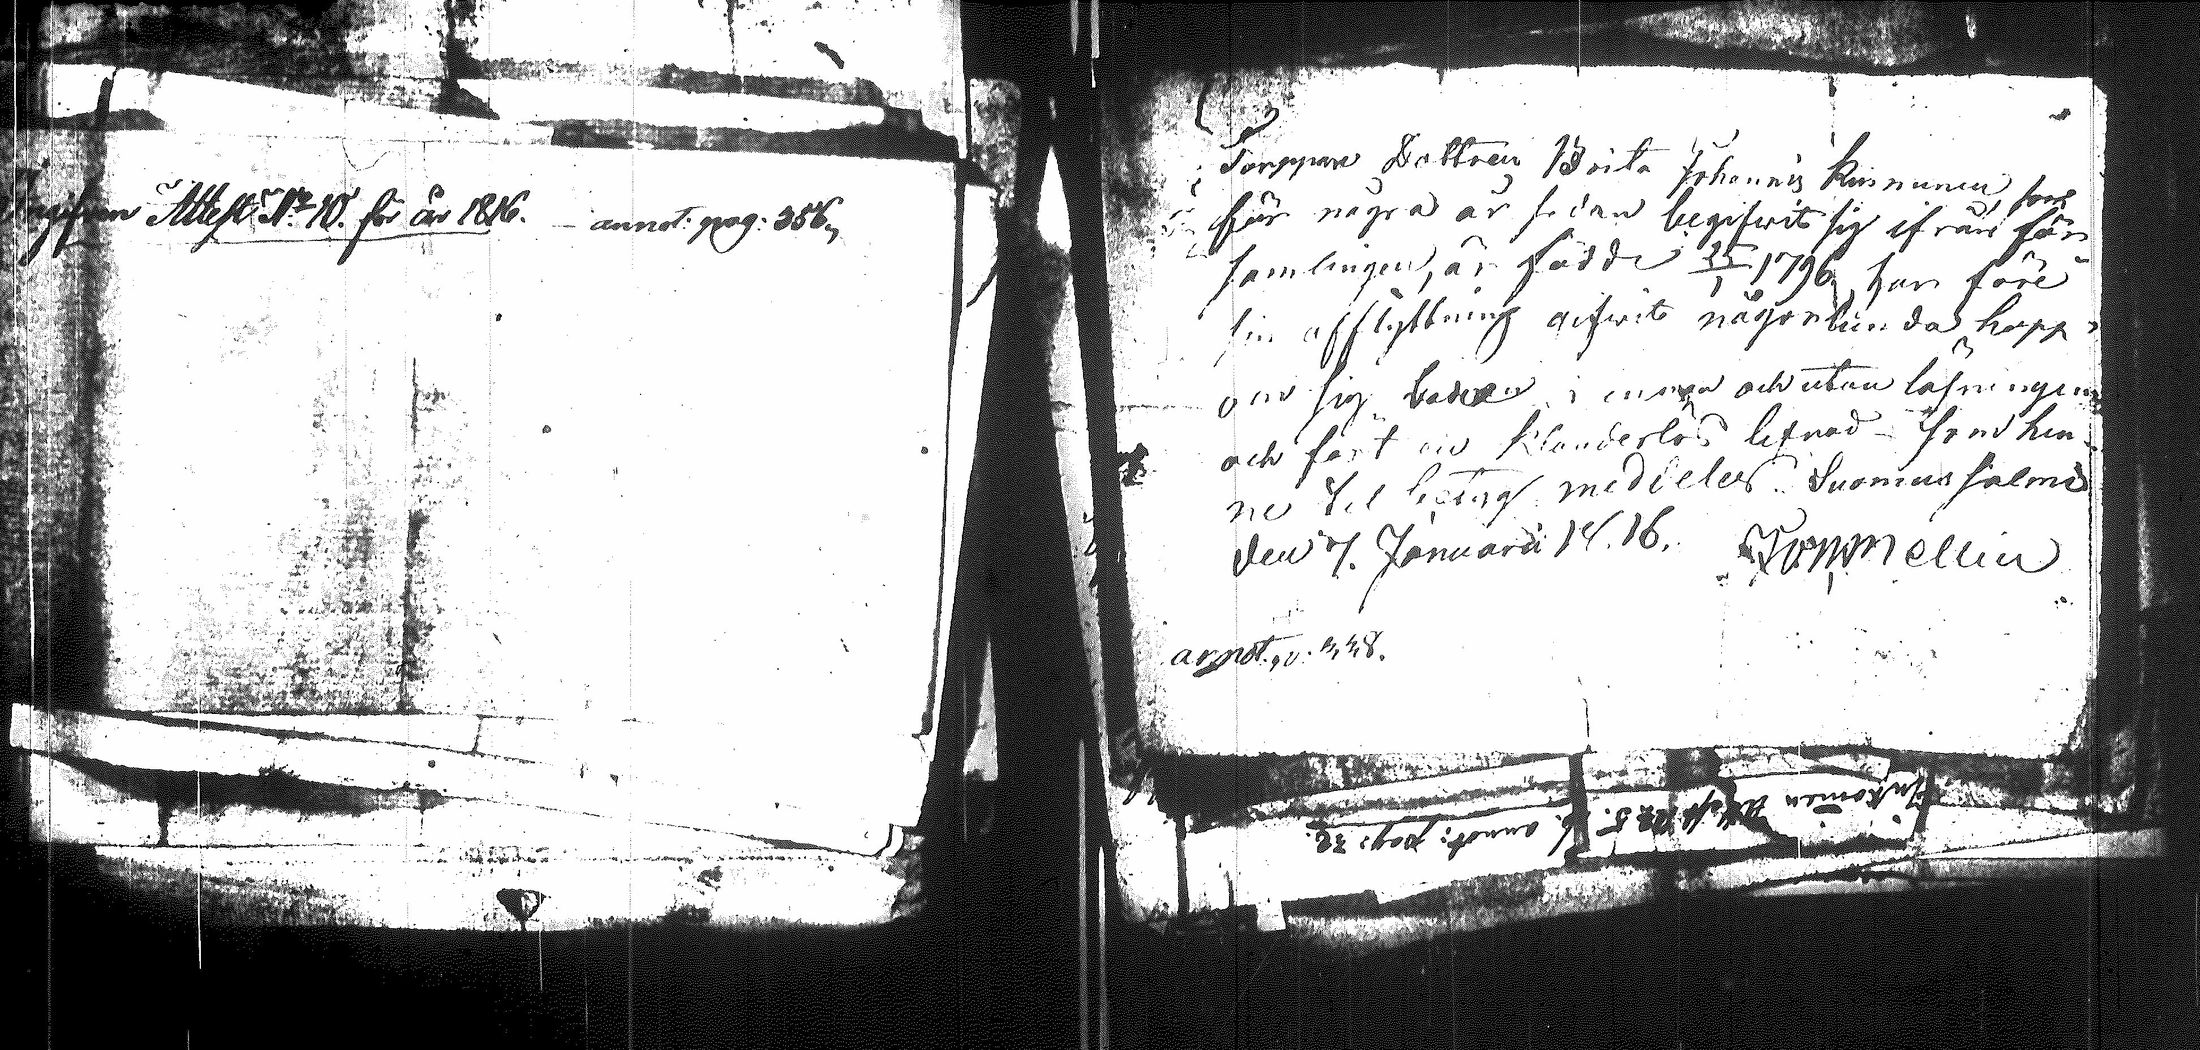 Ingifven Attest N:º 10. för år 1816. annot: pag: 356,
Torppare Dottren Brita Johannis Kinnunen som
för några år sedan begifwit sig ifrån för
samlingen, är födde 25/1 1796, har före
sin afflyttning gifwit någorlunda hopp
om sig i innan och utan läsningen
och fört en klanderlös lefnad - som hen-
ne til betyg meddeles. Suomussalmi
den 7. Januarii 1816. Tommelin
annot. p: 338.
Inkomen Attest N:º 5. annot: pag: 32.